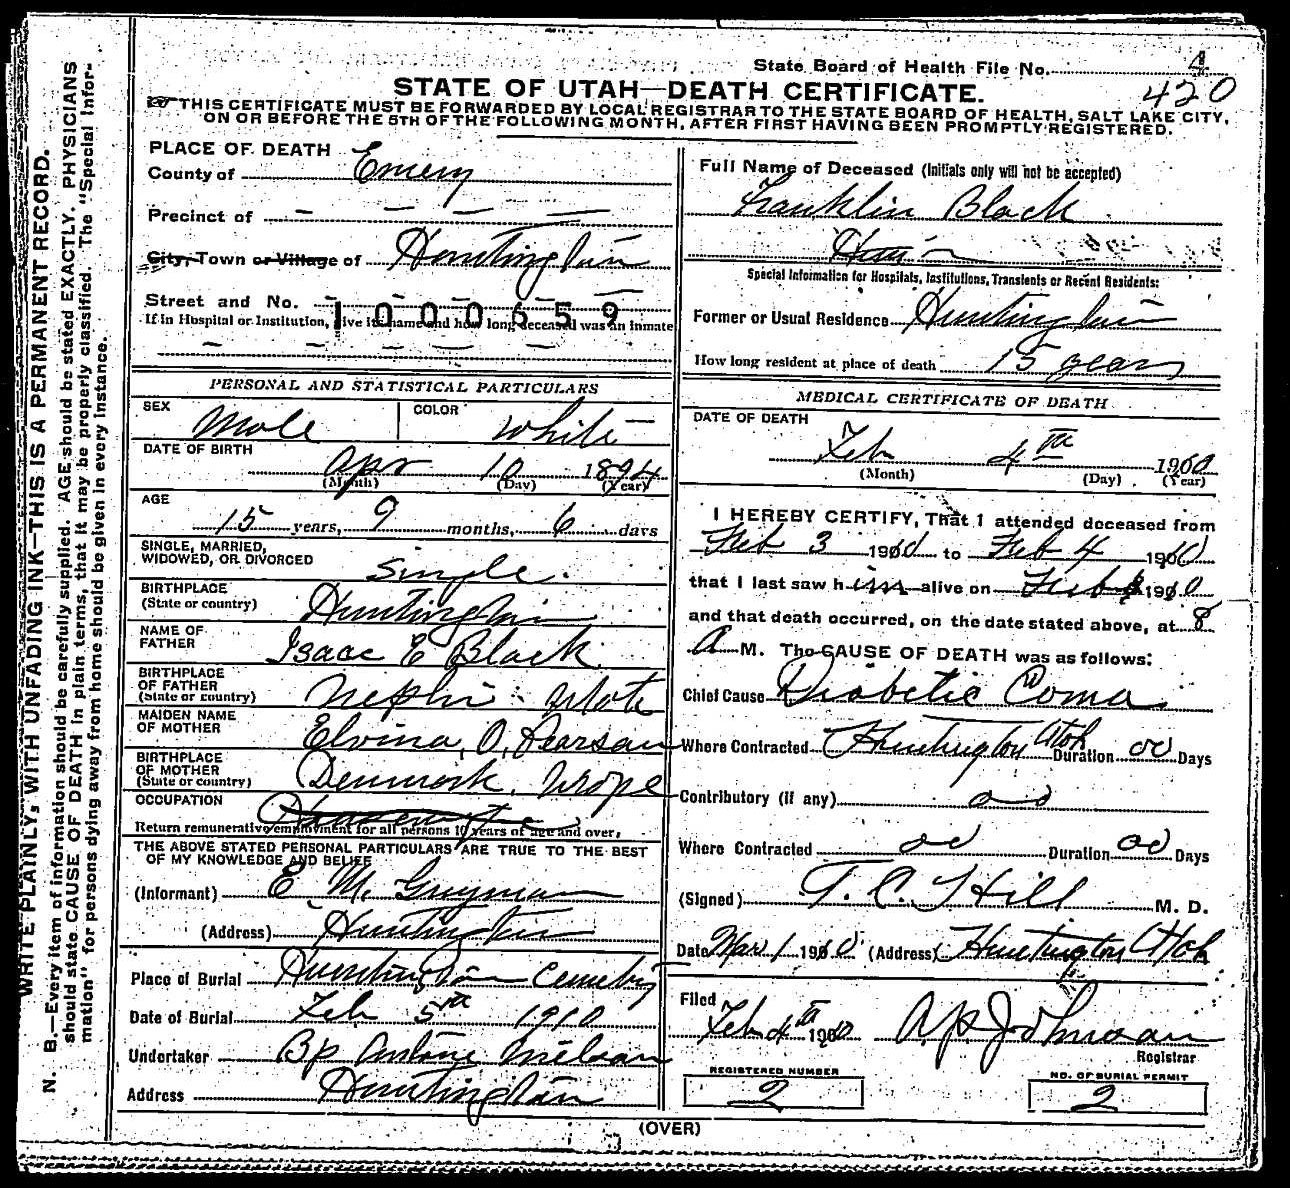 State Board of Health File No. 4
420
STATE OF UTAH—DEATH CERTIFICATE.
THIS CERTIFICATE MUST BE FORWARDED BY LOCAL REGISTRAR TO THE STATE BOARD OF HEALTH, SALT LAKE CITY,
ON OR BEFORE THE 5TH OF THE FOLLOWING MONTH, AFTER FIRST HAVING BEEN PROMPTLY REGISTERED.
WRITE PLAINLY, WITH UNFADING INK—THIS IS A PERMANENT RECORD.
N. B.—Every item of information should be carefully supplied. AGE should be stated EXACTLY. PHYSICIANS
should state CAUSE OF DEATH in plain terms, that it may be properly classified. The "Special Infor-
mation" for persons dying away from home should be given in every instance.
PLACE OF DEATH
County of Emery
Precinct of — — — —
City, Town or Village of Huntington
Street and No. — — — — —
1000659
If in Hospital or Institution, give its name and how long deceased was an inmate
— — — —
PERSONAL AND STATISTICAL PARTICULARS
SEX Male COLOR White
DATE OF BIRTH
Apr 10 1894
(Month) (Day) (Year)
AGE
15 years, 9 months, 6 days
SINGLE, MARRIED,
WIDOWED, OR DIVORCED Single.
BIRTHPLACE
(State or country) Huntington
NAME OF
FATHER Isaac E Black
BIRTHPLACE
OF FATHER
(State or country) Nephi
MAIDEN NAME
OF MOTHER Elvina, O, Pearson
BIRTHPLACE
OF MOTHER
(State or country) Denmark,
OCCUPATION
Return remunerative employment for all persons 10 years of age and over,
THE ABOVE STATED PERSONAL PARTICULARS ARE TRUE TO THE BEST
OF MY KNOWLEDGE AND BELIEF
(Informant) E M. Guyman
(Address) Huntington
Place of Burial Huntington Cemetery
Date of Burial Feb 5th 1910
Undertaker Bp
Address Huntington
Full Name of Deceased (Initials only will not be accepted)
Franklin Black
Special Information for Hospitals, Institutions, Transients or Recent Residents:
Former or Usual Residence Huntington
How long resident at place of death 15 years
MEDICAL CERTIFICATE OF DEATH
DATE OF DEATH
Feb 4th 1910
(Month) (Day) (Year)
I HEREBY CERTIFY, That I attended deceased from
Feb 3 1910 to Feb 4 1910
that I last saw him alive on Feb 4 1910
and that death occurred, on the date stated above, at 8
A M. The CAUSE OF DEATH was as follows:
Chief Cause Diabetic Coma
Where Contracted Huntington Utah Duration oo Days
Contributory (if any) oo
Where Contracted oo Duration oo Days
(Signed) T. C. Hill M. D.
Date Mar 1 1910 (Address) Huntington Utah
Filed
Feb 4th 1910
Registrar
REGISTERED NUMBER
2
NO. OF BURIAL PERMIT
2
(OVER)